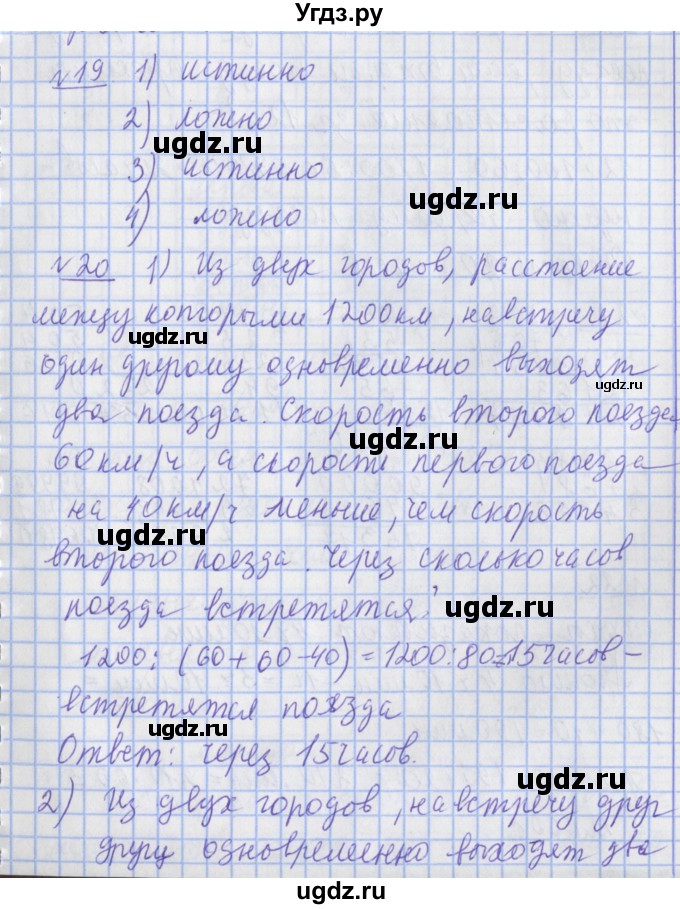 Угдз.ру
№19 1) истинно
2) ложно
ugdz.ru
3) истинно
ugdz.ru
4) ложно
ugdz.ru
№20 1) Из двух городов, расстояние
между которыми 1200км, навстречу
ugdz.ru
один другому одновременно выходят
ugdz.ru
два поезда. Скорость второго поезда
ugdz.ru
60км/ч, а скорости первого поезда
на 40км/ч меньше, чем скорость
ugdz.ru
второго поезда. Через сколько часов
поезда встретятся?
ugdz.ru
1200: (60+60-40)=1200:80=15часов-
встретятся поезда
ugdz.ru
Ответ: через 15часов.
ugdz.ru
2) Из двух городов, навстречу друг
другу одновременно выходят два
ugdz.ru